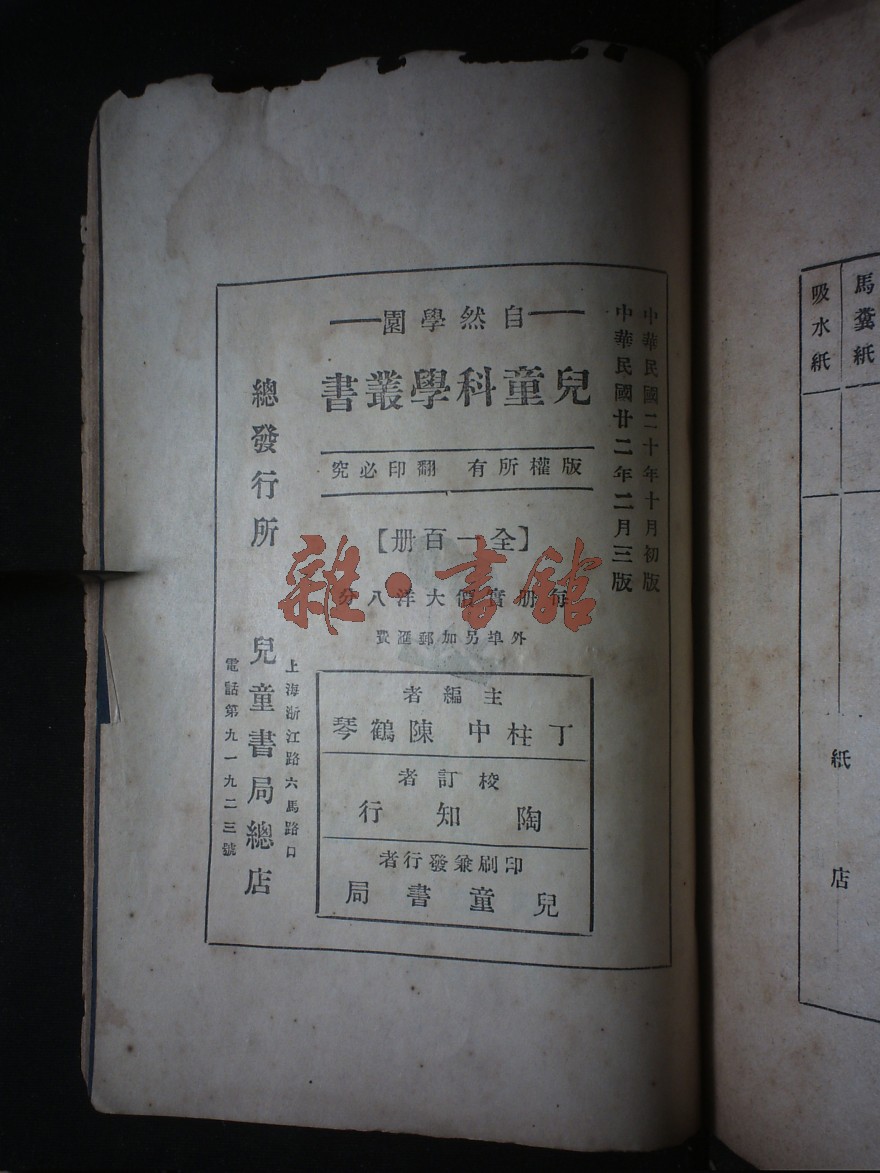 馬糞紙
吸水紙
紙
店
中華民國二十年十月初版
中華民國廿二年二月三版
自然學園
兒童科學叢書
版權所有 翻印必究
【全一百册】
每册實價大洋八分
外埠另加郵滙費
主編者
丁柱中 陳鶴琴
校訂者
陶知行
印刷兼發行者
兒童書局
總發行所
上海浙江路六馬路口
兒童書局總店
電話第九一九二三號
雜·書館